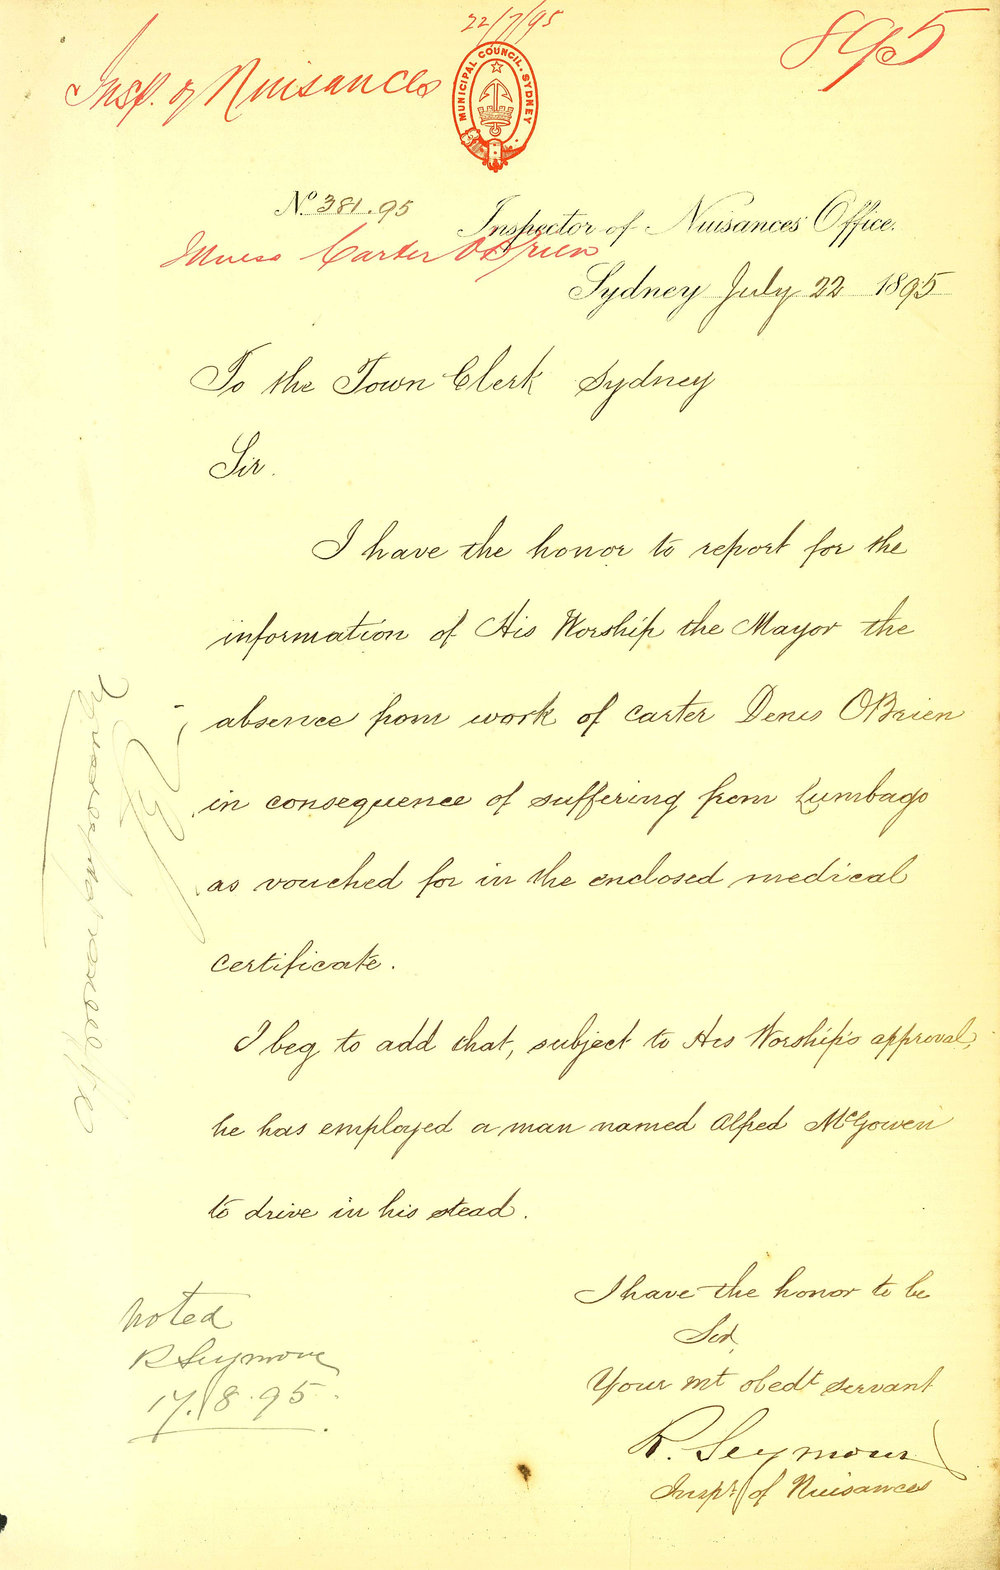 22/7/95
895
Insp. of Nuisances
MUNICIPAL COUNCIL. SYDNEY
No. 381.95
Inspector of Nuisances Office.
Illness Carter O'Brien
Sydney July 22 1895
To the Town Clerk Sydney
Sir.
I have the honor to report for the
information of His Worship the Mayor the
absence from work of carter Denis OBrien
in consequence of suffering from Lumbago
as vouched for in the enclosed medical
certificate.
I beg to add that, subject to His Worship's approval,
he has employed a man named Alfred McGowen
to drive in his stead.
I have the honor to be
Sir,
Your mt obedt servant
R. Seymour
Inspr. of Nuisances
Noted
R Seymour
17.8.95